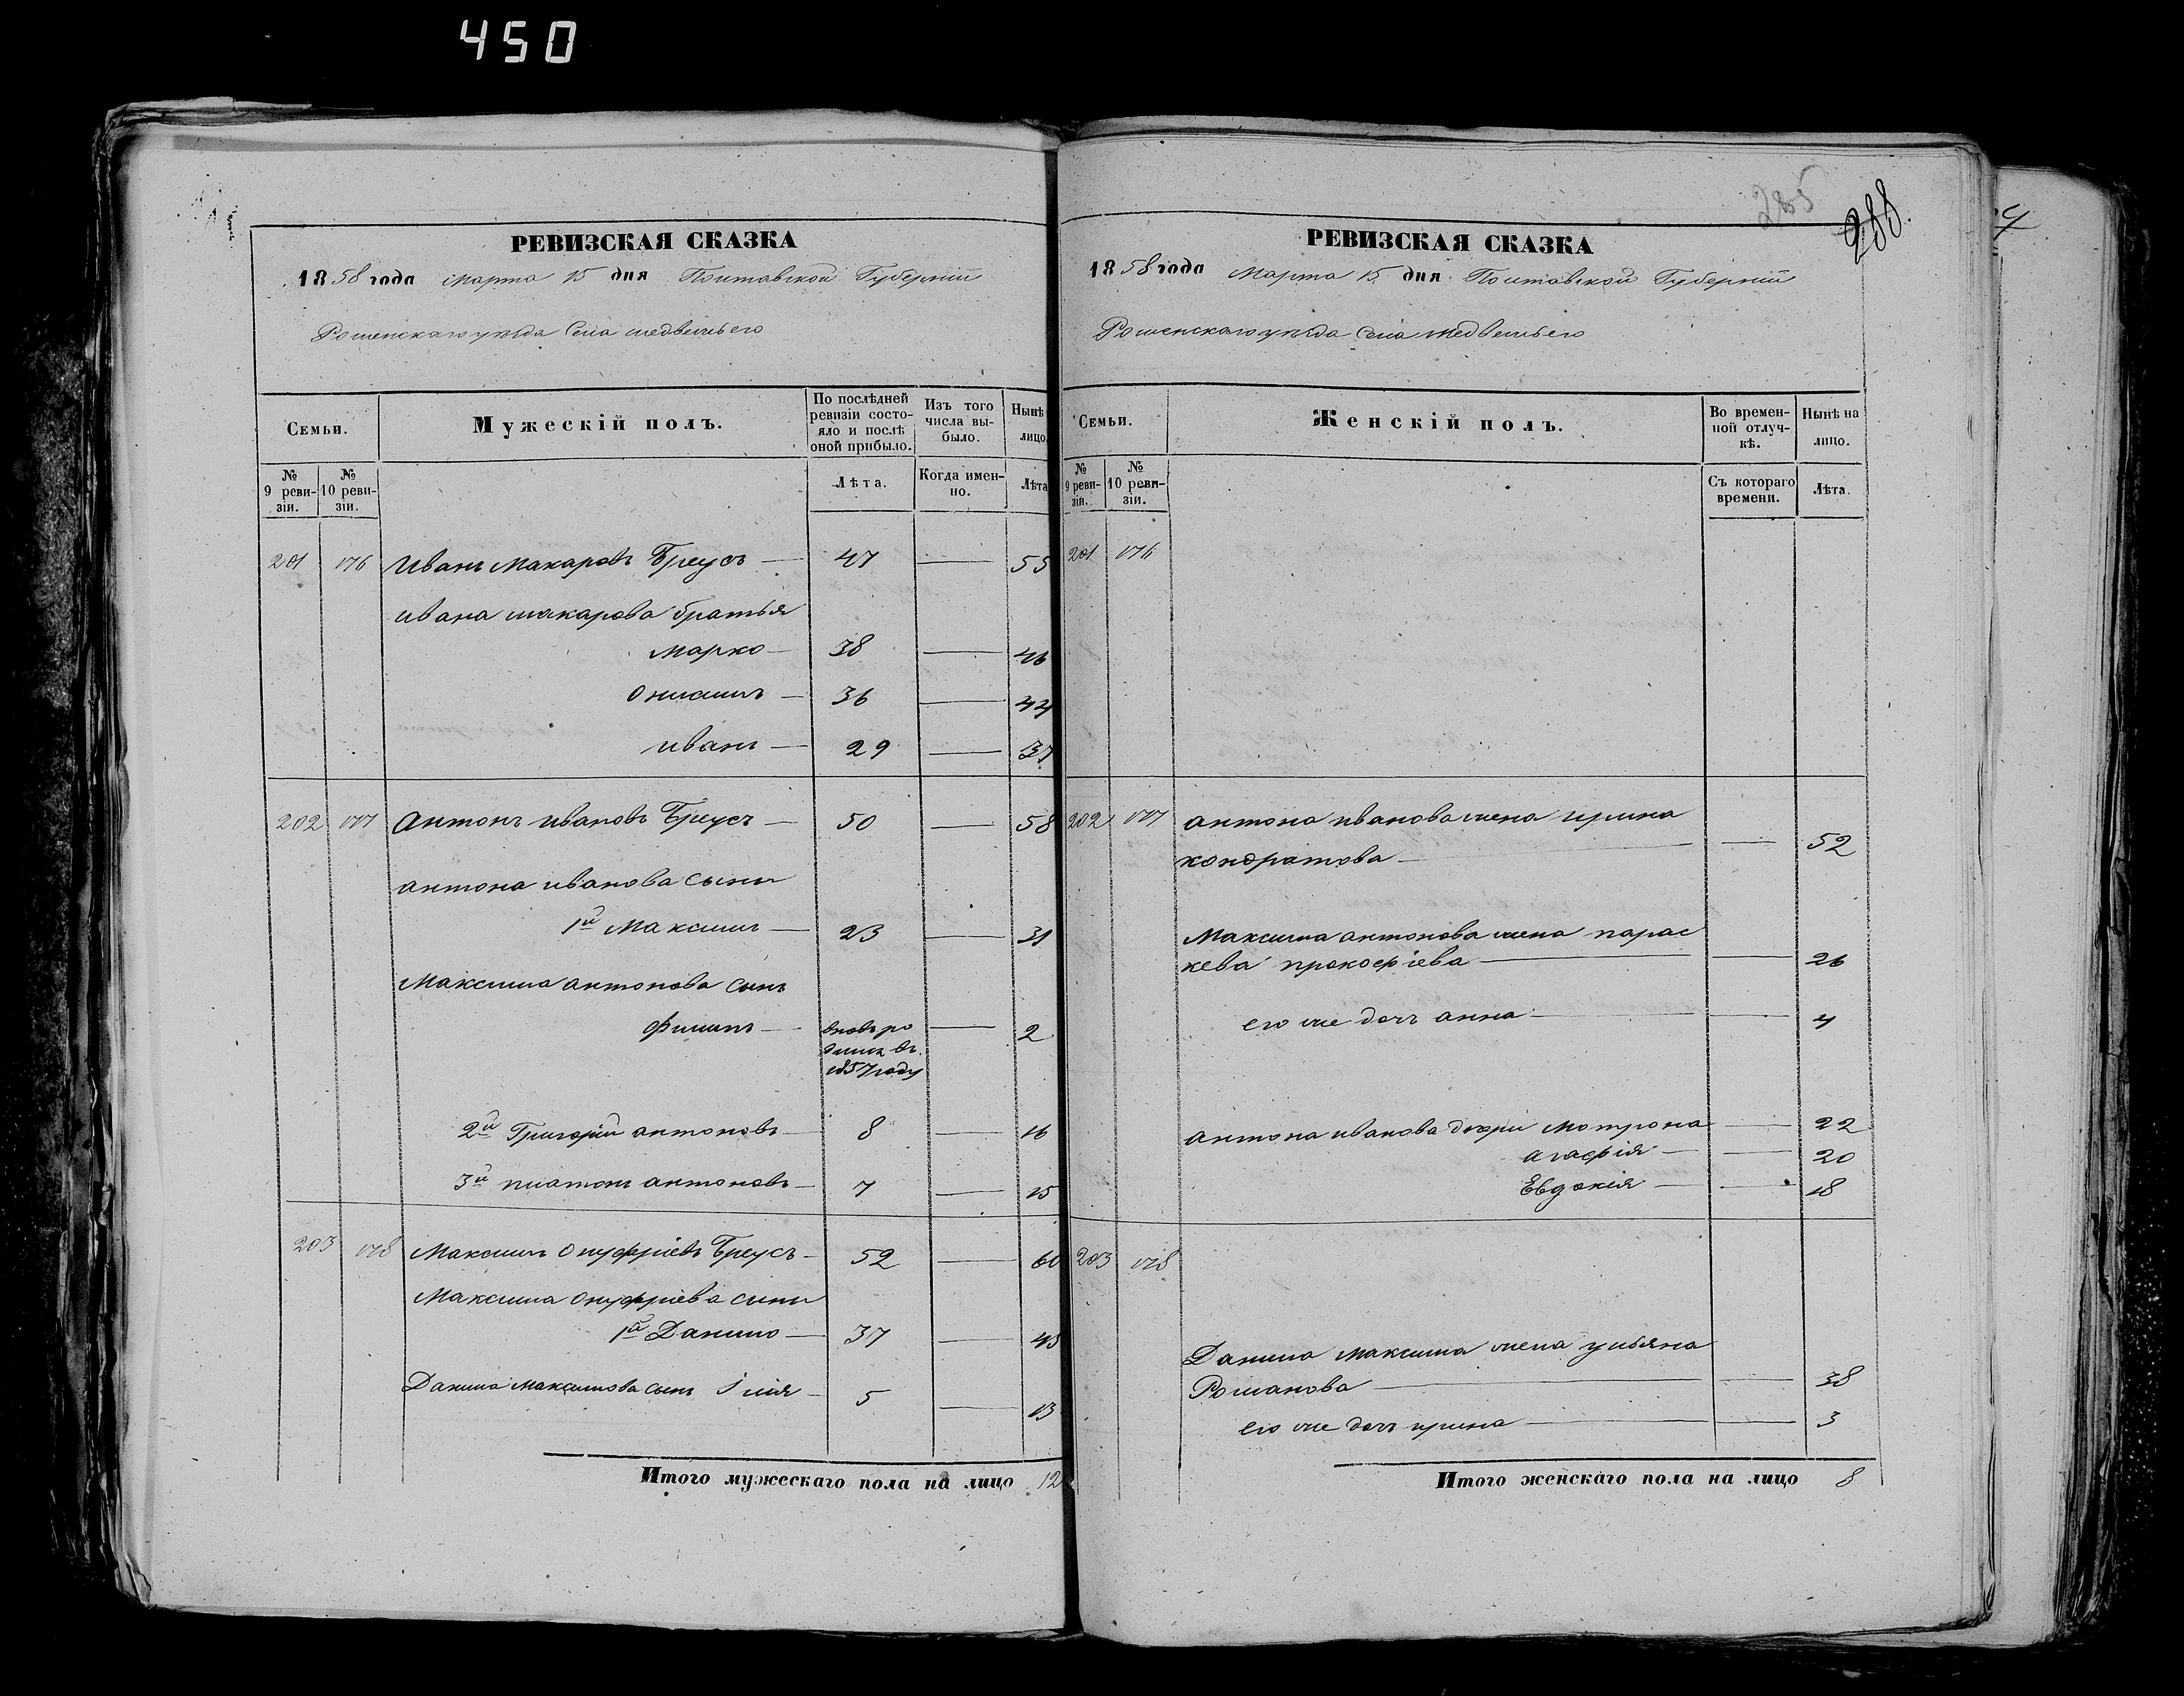 450
РЕВИЗСКАЯ СКАЗКА
1858 года Марта 15 дня Полтавской Губерніи
Роменскаго уѣзда Села Медвежьего
Семьи.
Мужескій полъ.
По послѣдней ревизіи состояло и послѣ оной прибыло.
Изъ того числа выбыло.
Нынѣ лицо.
№ 9 ревизіи.
№ 10 ревизіи.
Лѣта.
Когда именно.
Лѣта
201 176 Иванъ Макаровъ Бреусъ — 47 — 55
Ивана Макарова братья
Марко — 38 — 46
Онисимъ — 36 — 44
Иванъ — 29 — 37
202 177 Антонъ Ивановъ Бреусъ — 50 — 58
Антона Иванова сыны
1й Максимъ — 23 — 31
Максима Антонова сынъ
Филипъ — вновь ро — 2
дился въ
1857 году
2й Григорій Антоновъ — 8 — 16
3й Платонъ Антоновъ — 7 — 15
203 178 Максимъ Онуфріевъ Бреусъ — 52 — 60
Максима Онуфріева сыны
1й Данило — 37 — 45
Данила Максимова сынъ Ілія — 5 — 13
Итого мужескаго пола на лицо 12
285
288.
РЕВИЗСКАЯ СКАЗКА
1858 года Марта 15 дня Полтавской Губерніи
Роменскаго уѣзда Села Медвежьего
Семьи.
Женскій полъ.
Во временной отлучкѣ.
Нынѣ на лицо.
№ 9 ревизіи.
№ 10 ревизіи.
Съ котораго времени.
Лѣта.
201 176
202 177 Антона Иванова жена Ирина
Кондратова — — 52
Максима Антонова жена Парас
кева Прокофіева — — 26
его же дочь Анна — — 4
Антона Иванова дочери Мотрона — 22
Агафія — — 20
Евдокія — — 18
203 178
Данила Максима жена Ульяна
Романова — — 38
его же дочь Ирина — — 3
Итого женскаго пола на лицо 8